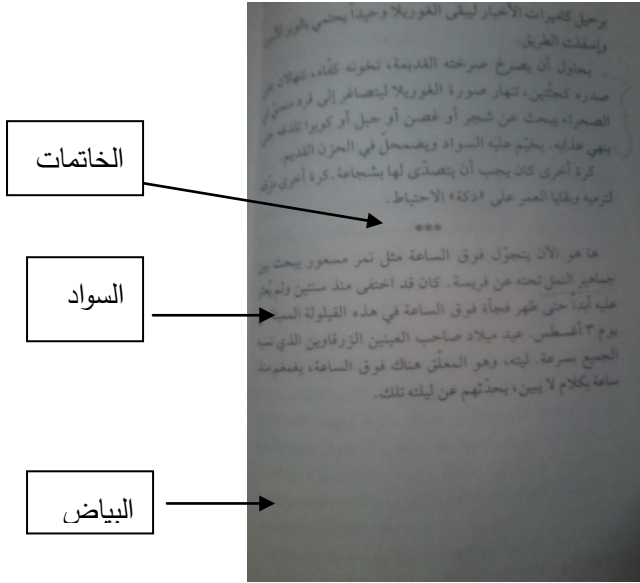 برحيل كاميرات الأخبار ليبقى الغوريلا وحيداً يحتمي
وإسفلت الطريق.
يحاول أن يصرخ صرخته القديمة، تخونه كفّاه، تنهالان على
صدره كجثّتين، تنهار صورة الغوريلا ليتصاغر إلى قرد منسيّ في
الصحراء يبحث عن شجر أو غصن أو حبل أو كوبرا تلدغه حتى
ينهي عذابه. يخيّم عليه السواد ويضمحلّ في الحزن القديم.
كرة أخرى كان يجب أن يتصدّى لها بشجاعة. كرة أخرى
لترميه وبقايا العمر على «دكة» الاحتياط.
الخاتمات
***
ها هو الآن يتجوّل فوق الساعة مثل نمر مسعور يبحث بين
جماهير النمل تحته عن فريسة. كان قد اختفى منذ سنتين ولم يُعثر
السواد
عليه أبداً حتى ظهر فجأة فوق الساعة في هذه القيلولة
يوم ٣ أغسطس. عيد ميلاد صاحب العينين الزرقاوين الذي
الجميع بسرعة. ليته، وهو المعلّق هناك فوق الساعة، يغمغم منذ
ساعة بكلام لا يبين، يحدّثهم عن ليلته تلك.
البياض